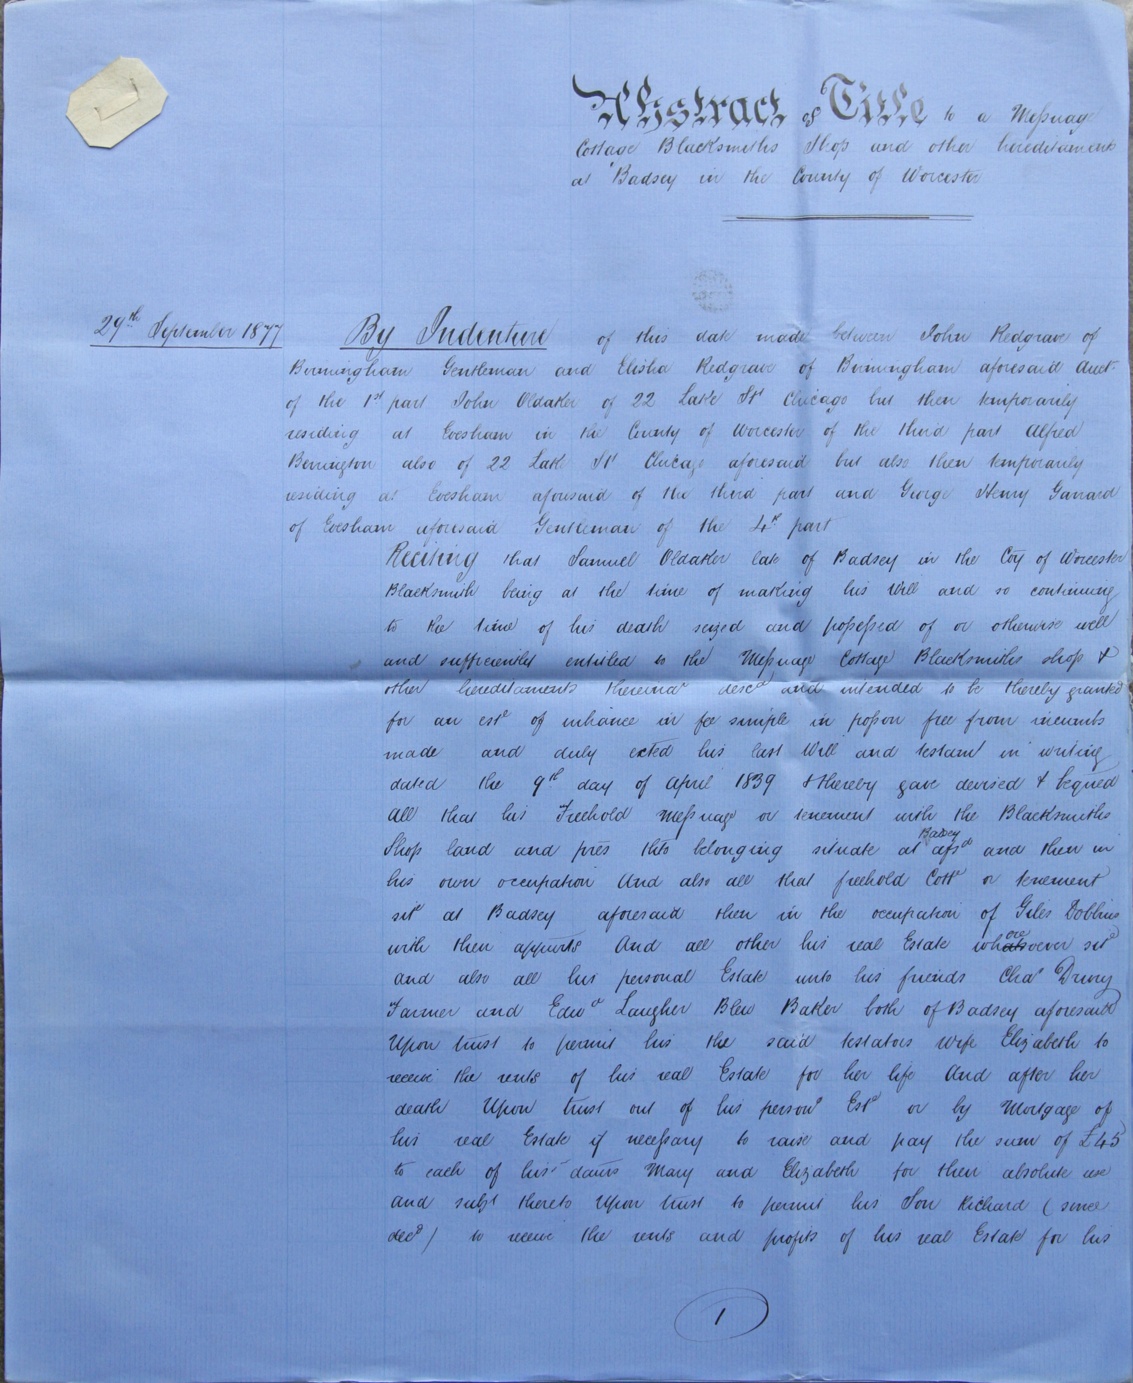 Abstract of Title to a Meſsuage
Cottage Blacksmiths Shop and other hereditaments
at Badsey in the County of Worcester
29th September 1877
By Indenture of this date made between John Redgrave of
Birmingham Gentleman and Elisha Redgrave of Birmingham aforesaid Auctr
of the 1st part John Oldaker of 22 Lake St Chicago but then temporarily
residing at Evesham in the County of Worcester of the third part Alfred
Bennington also of 22 Lake St Chicago aforesaid but also then temporarily
residing at Evesham aforesaid of the third part and George Henry Garrard
of Evesham aforesaid Gentleman of the 4th part
Reciting that Samuel Oldaker late of Badsey in the Coy of Worcester
Blacksmith being at the time of making his Will and so continuing
to the time of his death seized and poſseſsed of or otherwise well
and sufficiently entitled to the Meſsuage Cottage Blacksmiths shop &
other hereditaments thereinar descd and intended to be thereby granted
for an este of inhance in fee simple in poſson free from incumbs
made and duly exted his last Will and testamt in writing
dated the 9th day of April 1839 & thereby gave devised & bequed
All that his Freehold meſsuage or tenement with the Blacksmiths
Shop land and pres thto belonging situate at Badsey afsd and then in
his own occupation And also all that freehold Cotte or tenement
site at Badsey aforesaid then in the occupation of Giles Dobbins
with their appurts And all other his real Estate whatsoever ore site
and also all his personal Estate unto his friends Chas Drury
Farmer and Edwd Laugher Blew Baker both of Badsey aforesaid
Upon trust to permit his the said testators wife Elizabeth to
receive the rents of his real Estate for her life And after her
death Upon trust out of his personl Este or by Mortgage of
his real Estate if neceſsary to raise and pay the sum of £45
to each of his daurs Mary and Elizabeth for their absolute use
and subjt thereto Upon trust to permit his Son Richard (since
decd) to receive the rents and profits of his real Estate for his
1